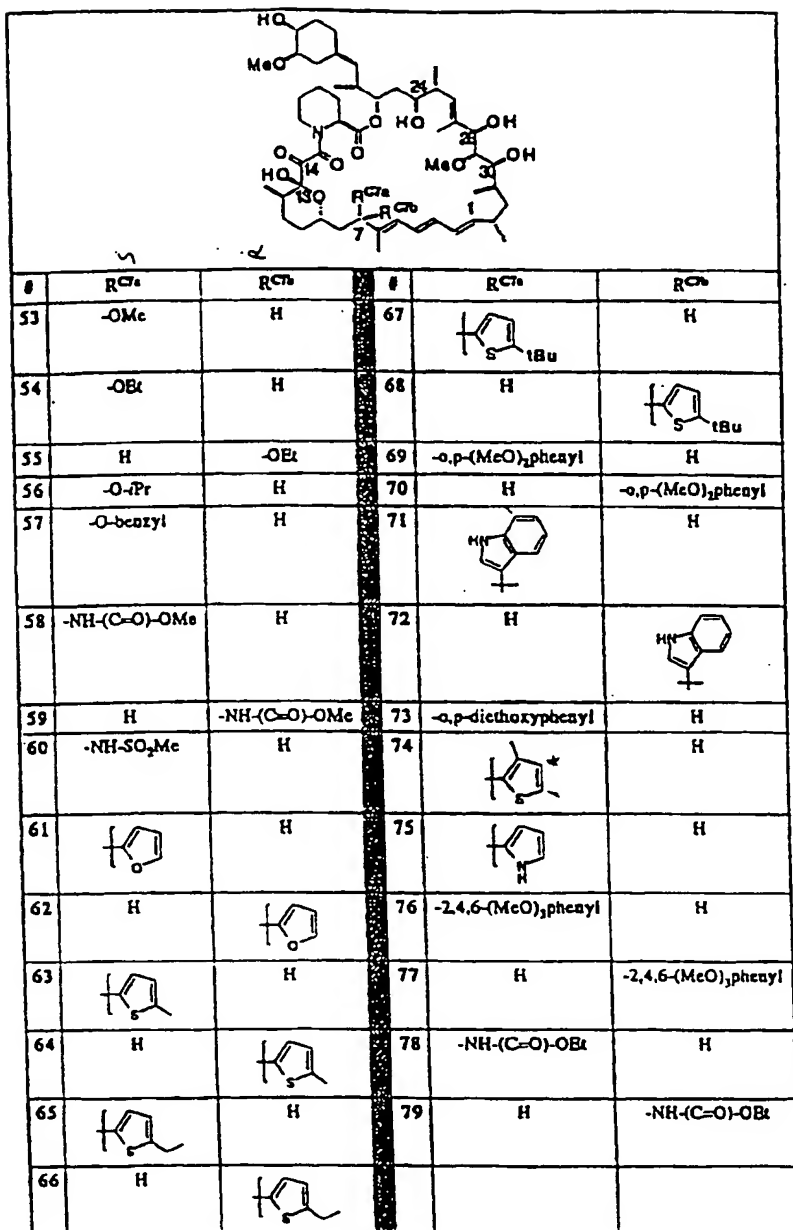 HO
MeO
24
O
HO
28
OH
N
O
O
O
14
O
MeO
30
OH
HO
13
O
R^C7a
R^C7b
1
7
S R
# R^C7a R^C7b # R^C7a R^C7b
53 -OMe H 67 S tBu H
54 -OEt H 68 H S tBu
55 H -OEt 69 -o,p-(MeO)₂phenyl H
56 -O-iPr H 70 H -o,p-(MeO)₂phenyl
57 -O-benzyl H 71 HN H
58 -NH-(C=O)-OMe H 72 H HN
59 H -NH-(C=O)-OMe 73 -o,p-diethoxyphenyl H
60 -NH-SO₂Me H 74 S * H
61 O H 75 N H H
62 H O 76 -2,4,6-(MeO)₃phenyl H
63 S H 77 H -2,4,6-(MeO)₃phenyl
64 H S 78 -NH-(C=O)-OEt H
65 S H 79 H -NH-(C=O)-OEt
66 H S